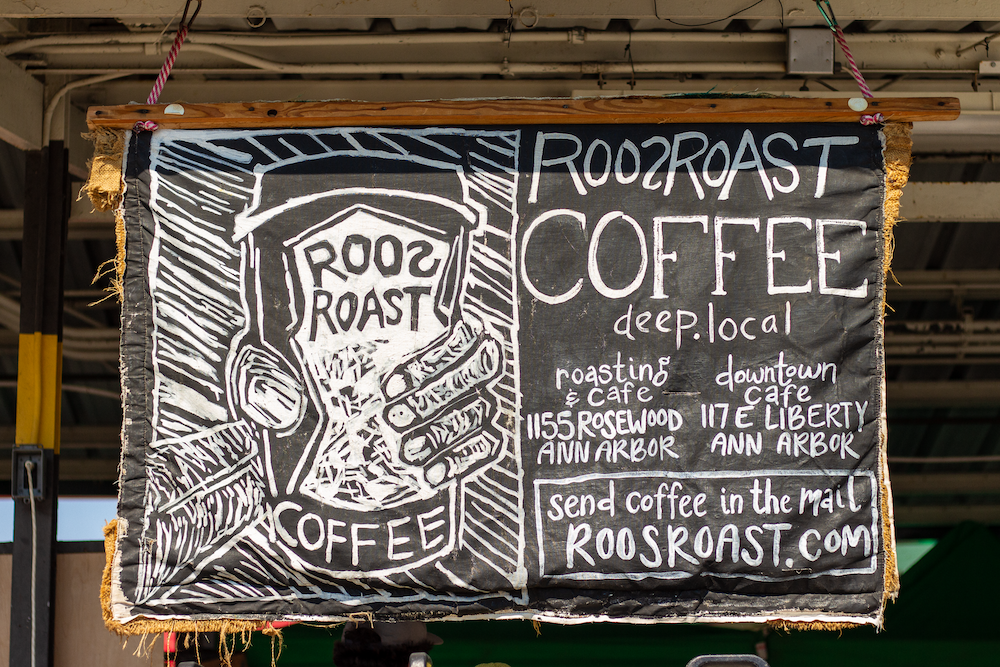 ROOS
ROAST
COFFEE
ROOSROAST
COFFEE
deep.local
roasting
& cafe
1155 ROSEWOOD
ANN ARBOR
downtown
cafe
117 E LIBERTY
ANN ARBOR
send coffee in the mail
ROOSROAST.COM